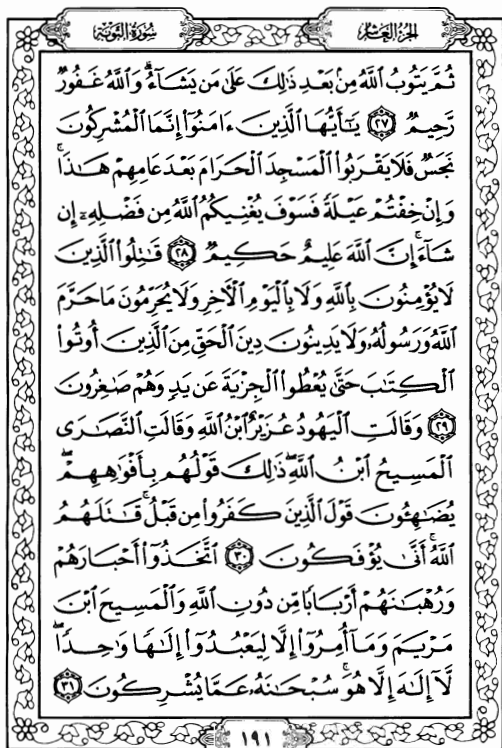 سُورَةُ التَّوْبَةِ الجُزْءُ العَاشِرُ
ثُمَّ يَتُوبُ ٱللَّهُ مِنۢ بَعْدِ ذَٰلِكَ عَلَىٰ مَن يَشَآءُ ۗ وَٱللَّهُ غَفُورٌ
رَّحِيمٌ ٢٧ يَـٰٓأَيُّهَا ٱلَّذِينَ ءَامَنُوٓا۟ إِنَّمَا ٱلْمُشْرِكُونَ
نَجَسٌ فَلَا يَقْرَبُوا۟ ٱلْمَسْجِدَ ٱلْحَرَامَ بَعْدَ عَامِهِمْ هَـٰذَا ۚ
وَإِنْ خِفْتُمْ عَيْلَةً فَسَوْفَ يُغْنِيكُمُ ٱللَّهُ مِن فَضْلِهِۦٓ إِن
شَآءَ ۚ إِنَّ ٱللَّهَ عَلِيمٌ حَكِيمٌ ٢٨ قَـٰتِلُوا۟ ٱلَّذِينَ
لَا يُؤْمِنُونَ بِٱللَّهِ وَلَا بِٱلْيَوْمِ ٱلْـَٔاخِرِ وَلَا يُحَرِّمُونَ مَا حَرَّمَ
ٱللَّهُ وَرَسُولُهُۥ وَلَا يَدِينُونَ دِينَ ٱلْحَقِّ مِنَ ٱلَّذِينَ أُوتُوا۟
ٱلْكِتَـٰبَ حَتَّىٰ يُعْطُوا۟ ٱلْجِزْيَةَ عَن يَدٍ وَهُمْ صَـٰغِرُونَ
٢٩ وَقَالَتِ ٱلْيَهُودُ عُزَيْرٌ ٱبْنُ ٱللَّهِ وَقَالَتِ ٱلنَّصَـٰرَى
ٱلْمَسِيحُ ٱبْنُ ٱللَّهِ ۖ ذَٰلِكَ قَوْلُهُم بِأَفْوَٰهِهِمْ ۖ
يُضَـٰهِـُٔونَ قَوْلَ ٱلَّذِينَ كَفَرُوا۟ مِن قَبْلُ ۚ قَـٰتَلَهُمُ
ٱللَّهُ ۚ أَنَّىٰ يُؤْفَكُونَ ٣٠ ٱتَّخَذُوٓا۟ أَحْبَارَهُمْ
وَرُهْبَـٰنَهُمْ أَرْبَابًا مِّن دُونِ ٱللَّهِ وَٱلْمَسِيحَ ٱبْنَ
مَرْيَمَ وَمَآ أُمِرُوٓا۟ إِلَّا لِيَعْبُدُوٓا۟ إِلَـٰهًا وَٰحِدًا ۖ
لَّآ إِلَـٰهَ إِلَّا هُوَ ۚ سُبْحَـٰنَهُۥ عَمَّا يُشْرِكُونَ ٣١
١٩١